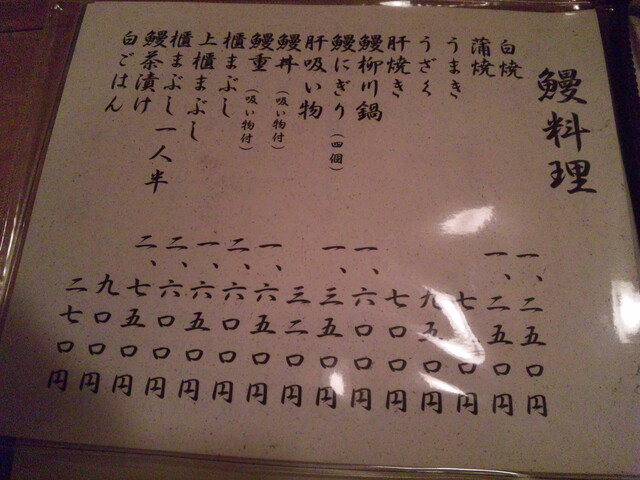 鰻料理
白焼 一、二五〇円
蒲焼 一、二五〇円
うまき
うざく 九五〇円
肝焼き 七〇〇円
鰻柳川鍋 一、六〇〇円
鰻にぎり（四個） 一、三五〇円
肝吸い物 三二〇円
鰻丼（吸い物付） 一、六五〇円
鰻重（吸い物付） 二、六〇〇円
櫃まぶし 一、六五〇円
上櫃まぶし 二、六〇〇円
櫃まぶし一人半 二、七五〇円
鰻茶漬け 九〇〇円
白ごはん 二七〇円